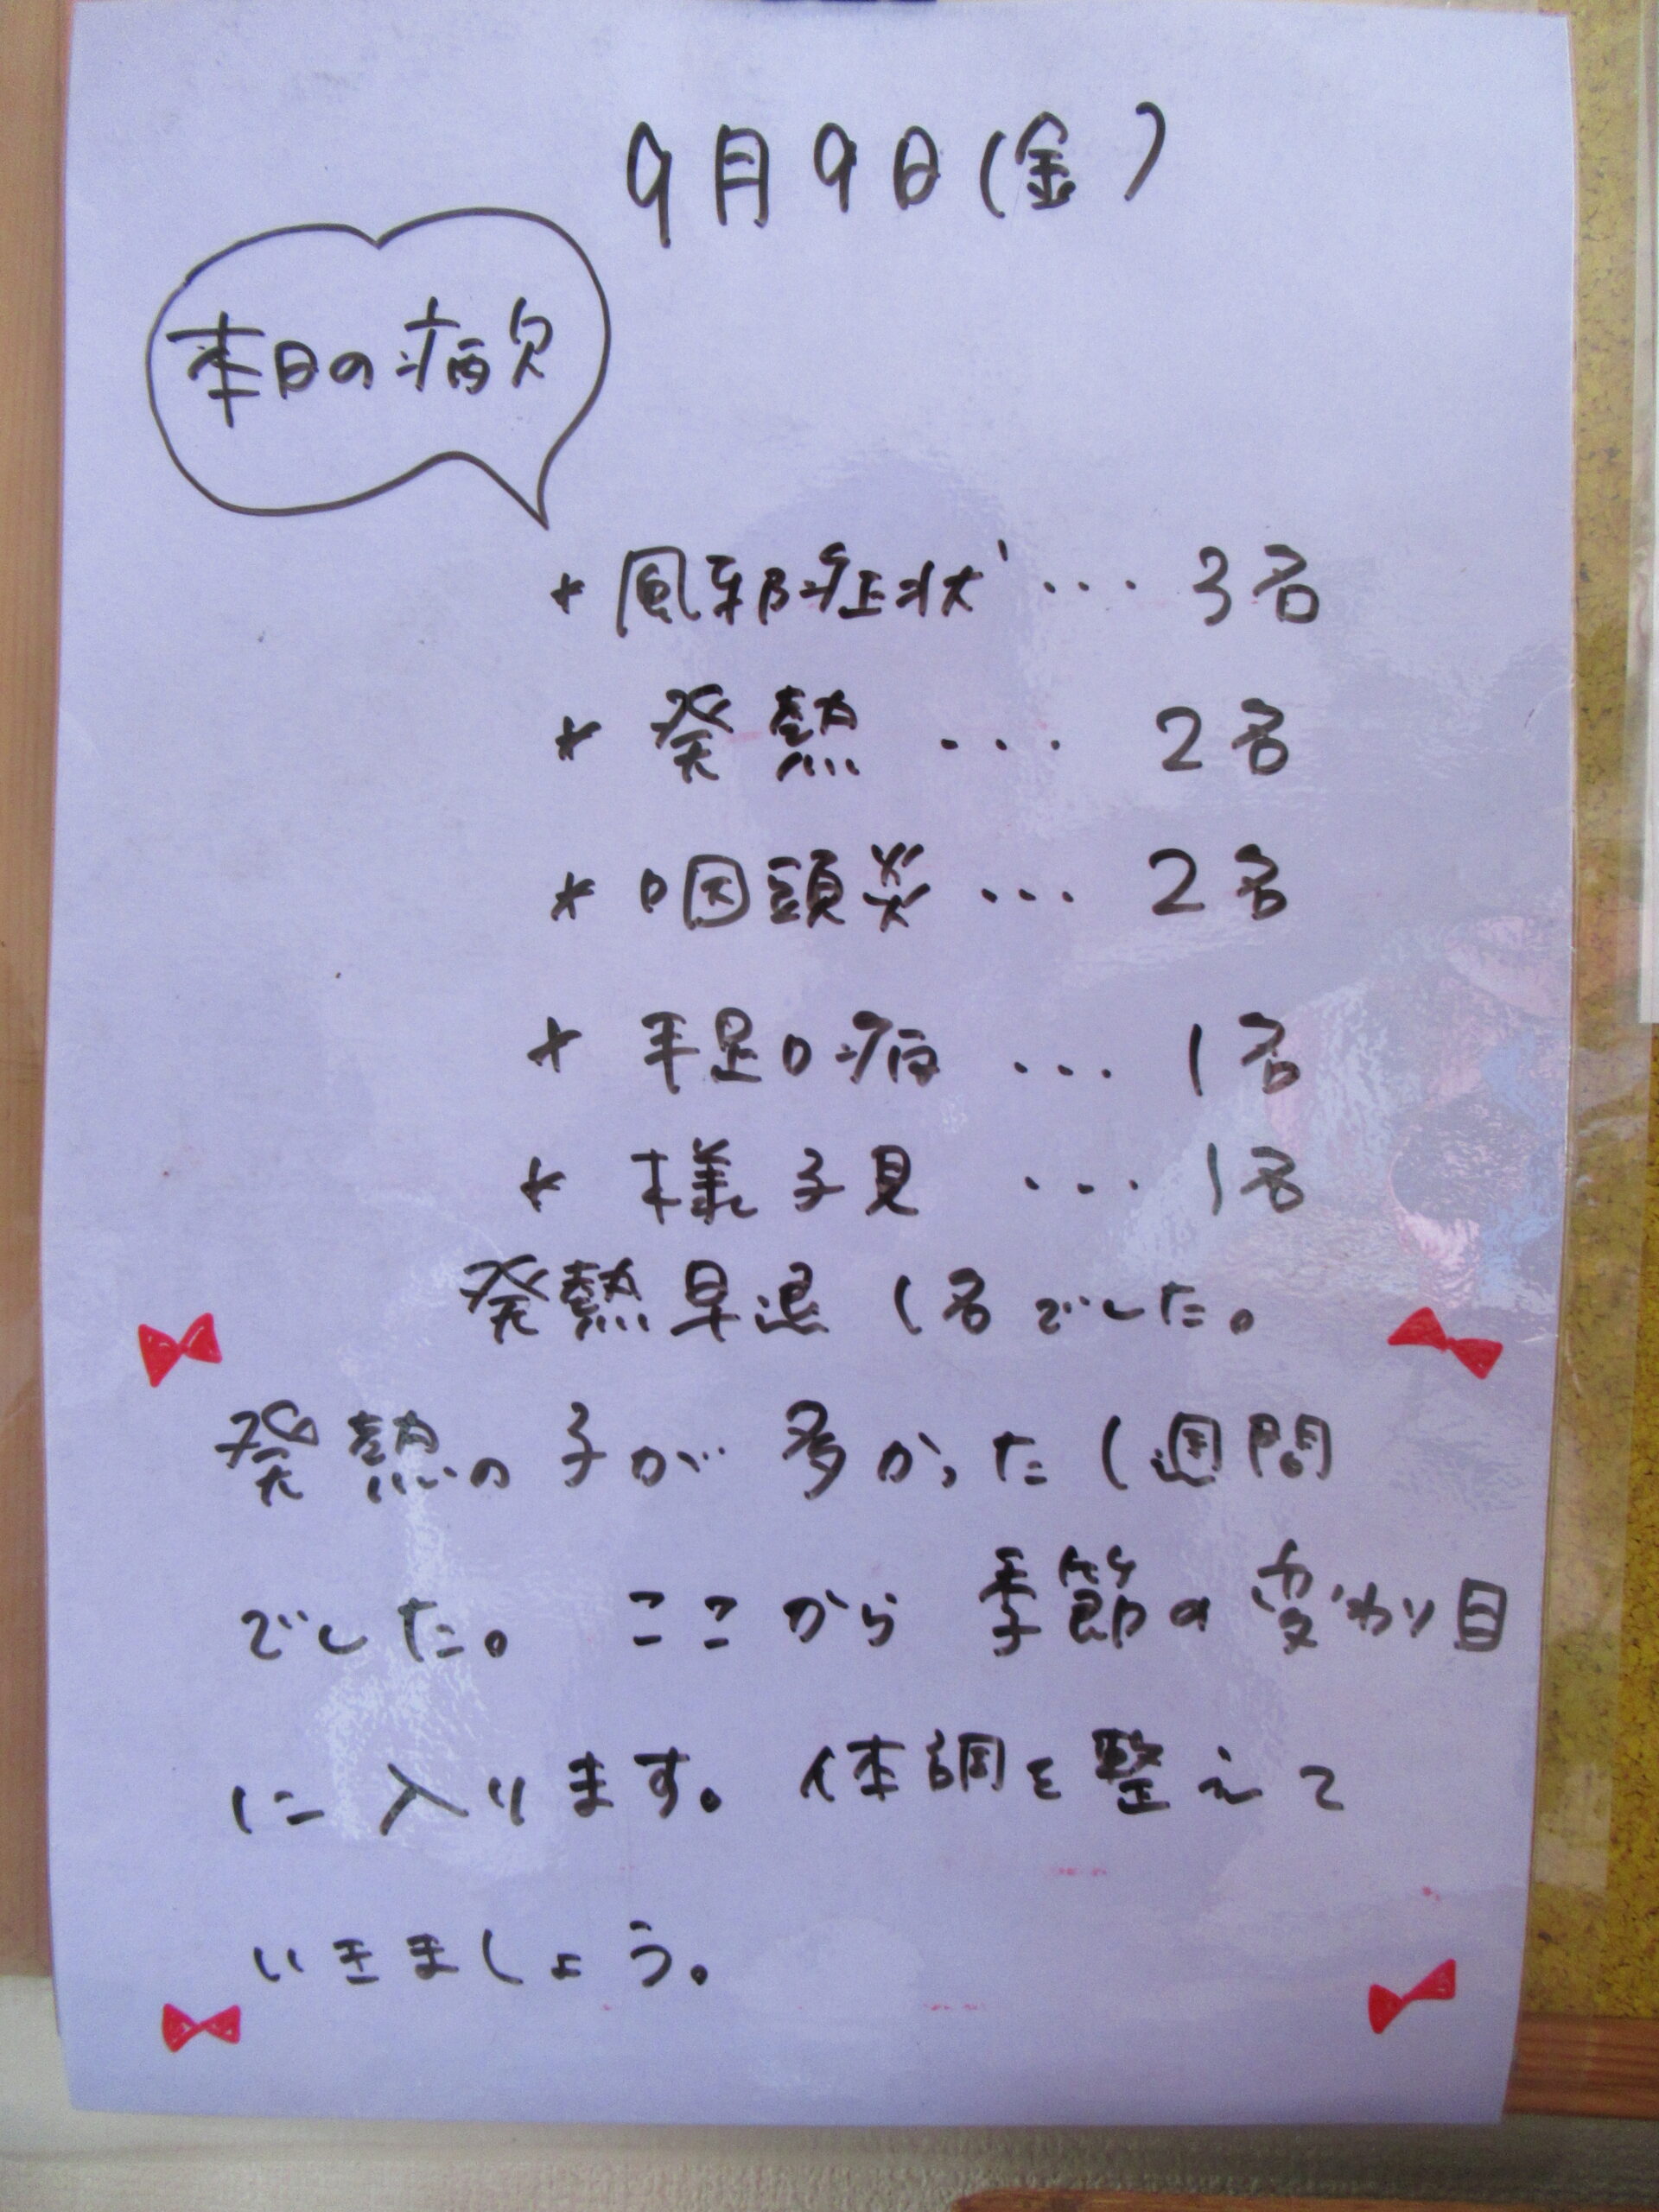 9月9日(金)
本日の病欠
* 風邪症状 ･･･ 3名
* 発熱 ･･･ 2名
* 咽頭炎 ･･･ 2名
* 手足口病 ･･･ 1名
* 様子見 ･･･ 1名
発熱早退 1名でした。
発熱の子が多かった1週間
でした。ここから季節の変わり目
に入ります。体調を整えて
いきましょう。